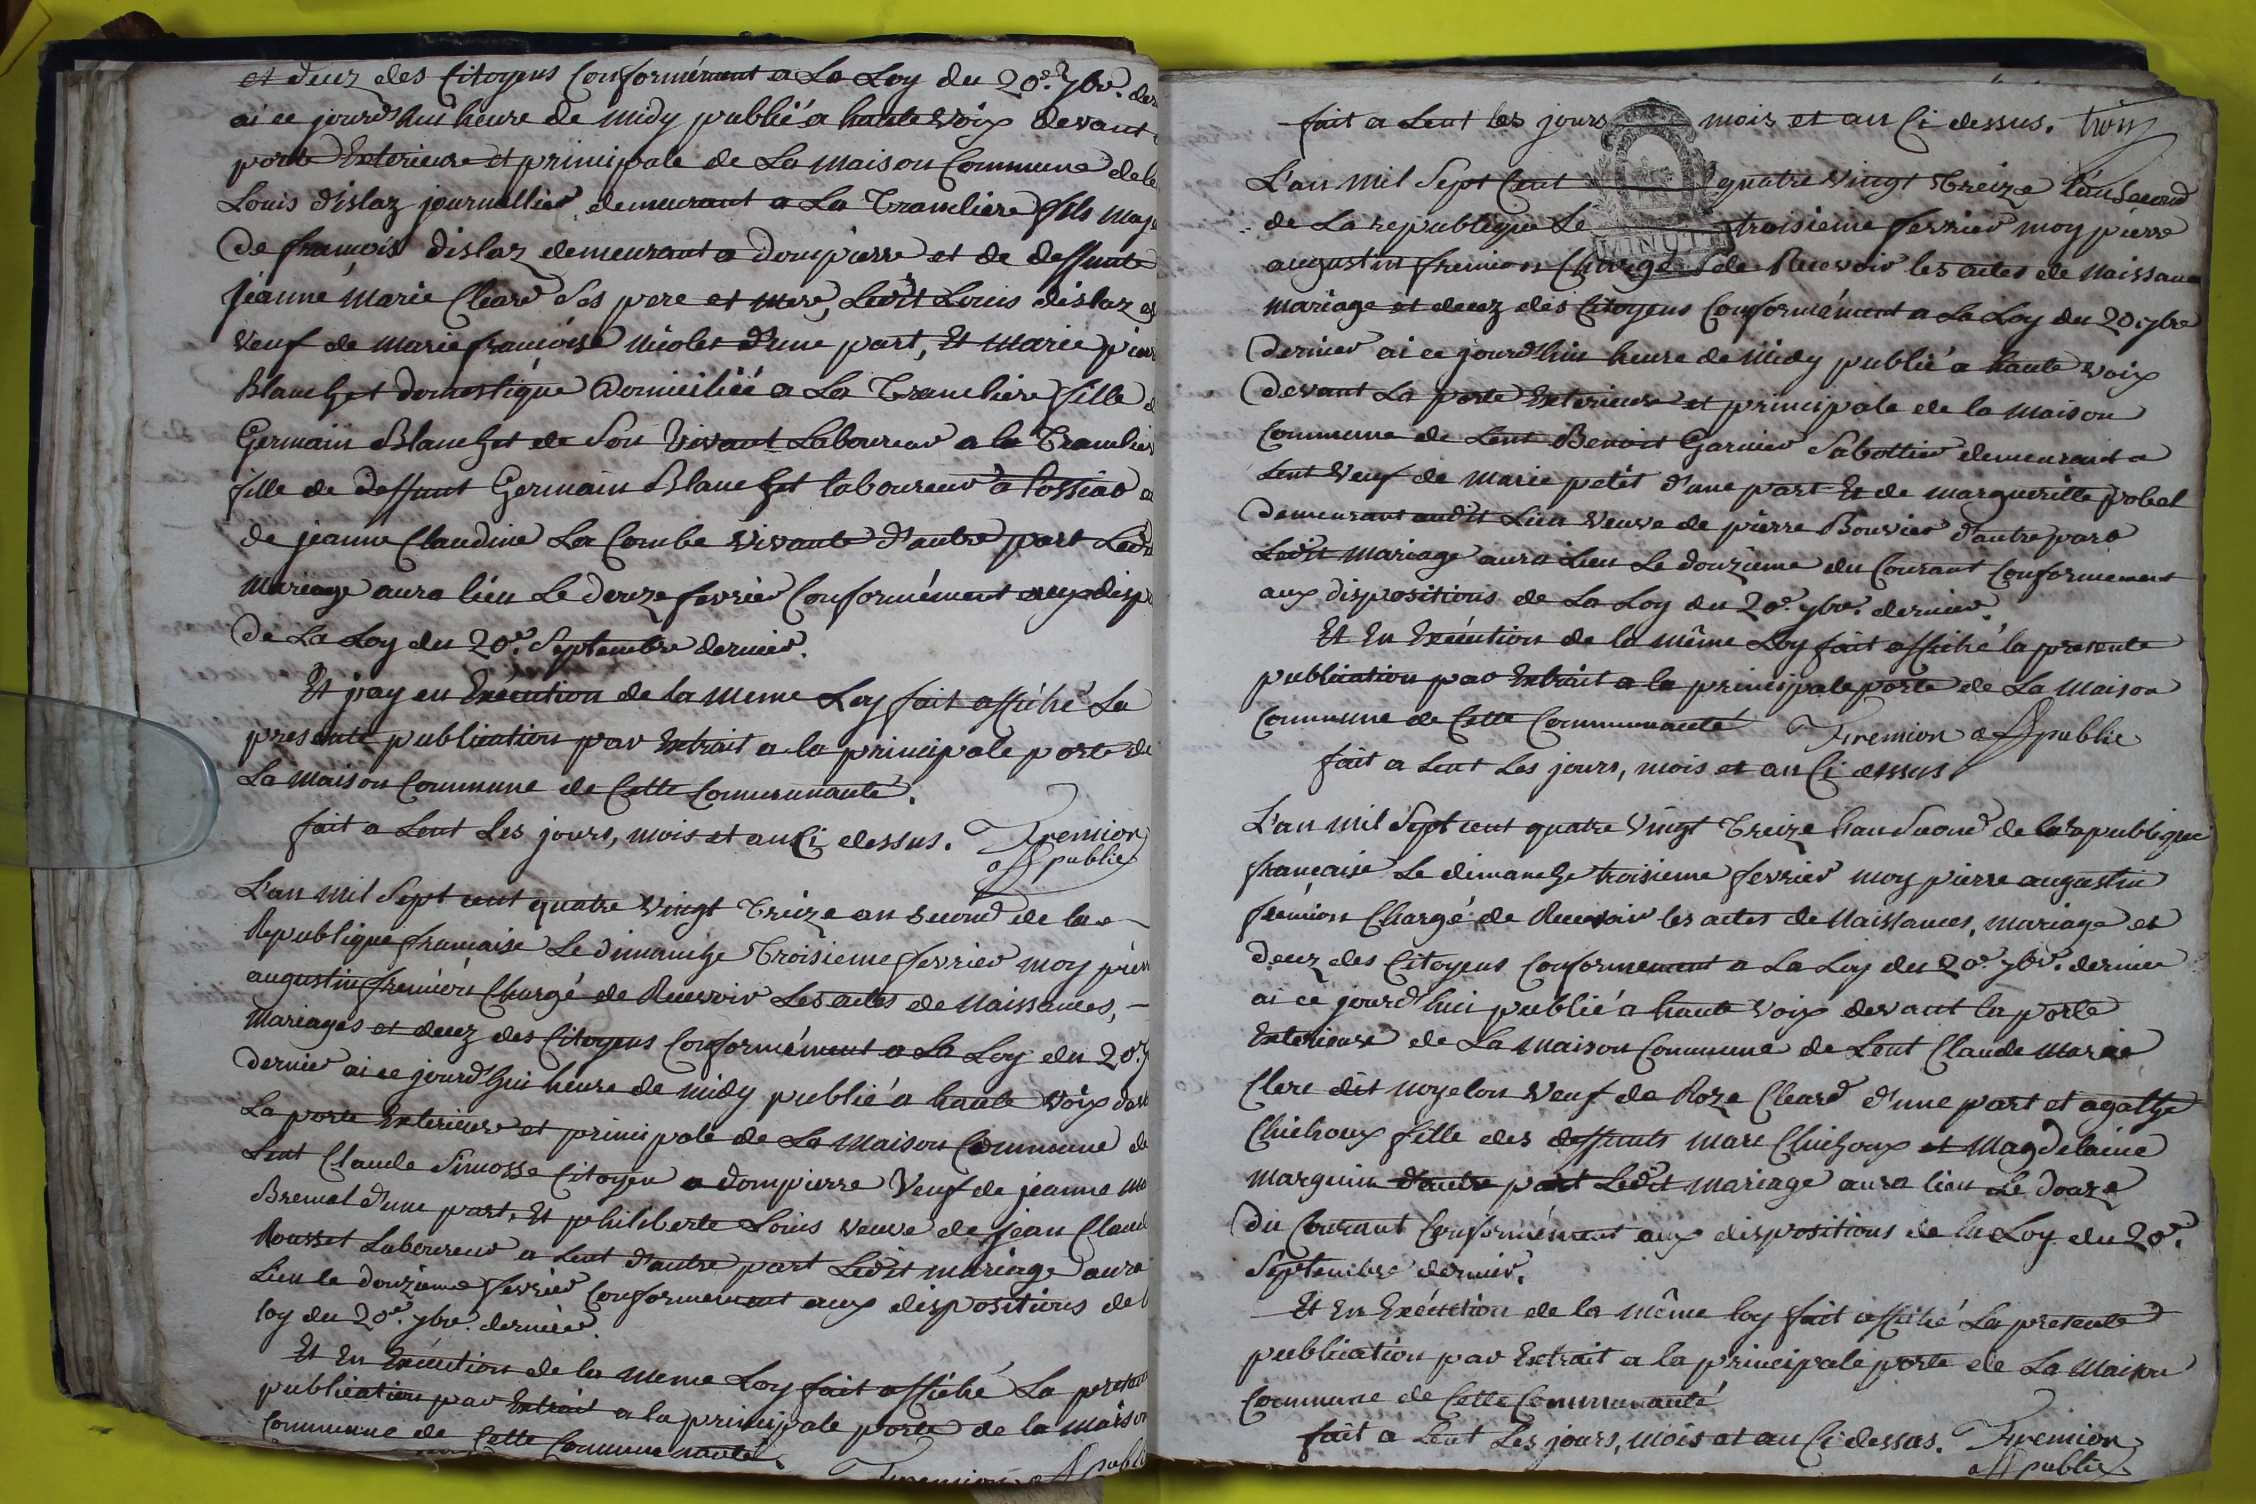 et decez des Citoyens Conformément a La Loy du 20e. 7bre. der
ai ce jourd'hui heure de midy publié a haute voix devant
porte Exterieure et principale de La maison Commune de Le
Louis dislaz journallier demeurant a La Trancliere fils maje
De françois dislaz demeurant a Dompierre et de deffunte
jeanne Marie Cleard Ses pere et mere, Ledit Louis dislaz es
veuf de marie françoise nicolet d'une part, Et Marie pierr
Blanchet domestique Domiciliée a La Trancliere fille d
Germain Blanchet de Son Vivant Laboureur a la Trancliere
fille de deffunt Germain Blanchet laboureur a Cossiat e
de jeanne Claudine La Combe vivante d'autre part Ledit
Mariage aura lieu Le douze fevrier Conformément aux disp
De La Loy du 20e. Septembre dernier.
Et j'ay en Exécution de la meme Loy fait affiché La
presente publication par Extrait a la principale porte de
La maison Commune de Cette Communauté.
fait a Lent Les jours, mois et an Ci dessus. Fremion
of public
L'an mil Sept cent quatre Vingt Treize an second de la
Republique française Le dimanche Troisieme fevrier moy pierre
augustin fremion Chargé de Recevoir Les actes de Naissances,
Mariages et decez des Citoyens Conformément a La Loy du 20e. 7
dernier ai ce jourd'hui heure de midy publié a haute voix dev
La porte Exterieure et principale de La Maison Commune de
Lent Claude Simosse Citoyen a dompierre Veuf de jeanne ma
Bremal d'une part, Et philiberte Louis veuve de jean Claud
Rousset Laboureur a Lent d'autre part Ledit mariage aura
Lieu le douzieme fevrier Conformement aux dispositions de l
loy du 20e. 7bre. dernier.
Et En Exécution de la meme Loy fait affiché La presente
publication par Extrait a la principale porte de la maison
Commune de Cette Communauté.
Fremion of public
fait a Lent les jours mois et an Ci dessus. trois
L'an mil Sept Cent quatre Vingt Treize l'an Second
de La republique Le troisieme fevrier moy pierre
augustin fremion Chargé de Recevoir les actes de Naissance
MINUTE
mariage et decez des Citoyens Conformément a La Loy du 20 7bre
Dernier ai ce jourd'hui heure de midy publié a haute voix
Devant La porte Exterieure et principale de la maison
Commune de Lent Benoit Garnier Sabottier demeurant a
Lent Veuf de marie petit d'une part Et de margueritte pobel
Demeurant audit Lieu veuve de pierre Bouvier d'autre part
Ledit mariage aura Lieu Le douzieme du Courant Conformement
aux dispositions de La Loy du 20e. 7bre. dernier.
Et En Exécution de la même Loy fait affiché la presente
publication par Extrait a la principale porte de La Maison
Commune de Cette Communauté Fremion of public
fait a Lent Les jours, mois et an Ci dessus
L'an mil Sept cent quatre Vingt Treize L'an Second de la republique
française Le dimanche troisieme fevrier moy pierre augustin
fremion Chargé de Recevoir les actes de Naissances, mariage et
decez des Citoyens Conformement a La Loy du 20e. 7bre. dernier
ai ce jourd'hui publié a haute voix devant la porte
Exterieure de La maison Commune de Lent Claude Marie
Clerc dit noyelon Veuf de Roze Cleard d'une part et agathe
Chichoux fille des deffunts marc Chichoux et Magdelaine
marguin d'autre part Ledit mariage aura lieu Le douze
du Courant Conformément aux dispositions de la Loy du 20e.
Septembre dernier.
Et En Exécution de la même loy fait affiché La presente
publication par Extrait a la principale porte de La Maison
Commune de Cette Communauté
fait a Lent Les jours, mois et an Ci dessus. Fremion
of public